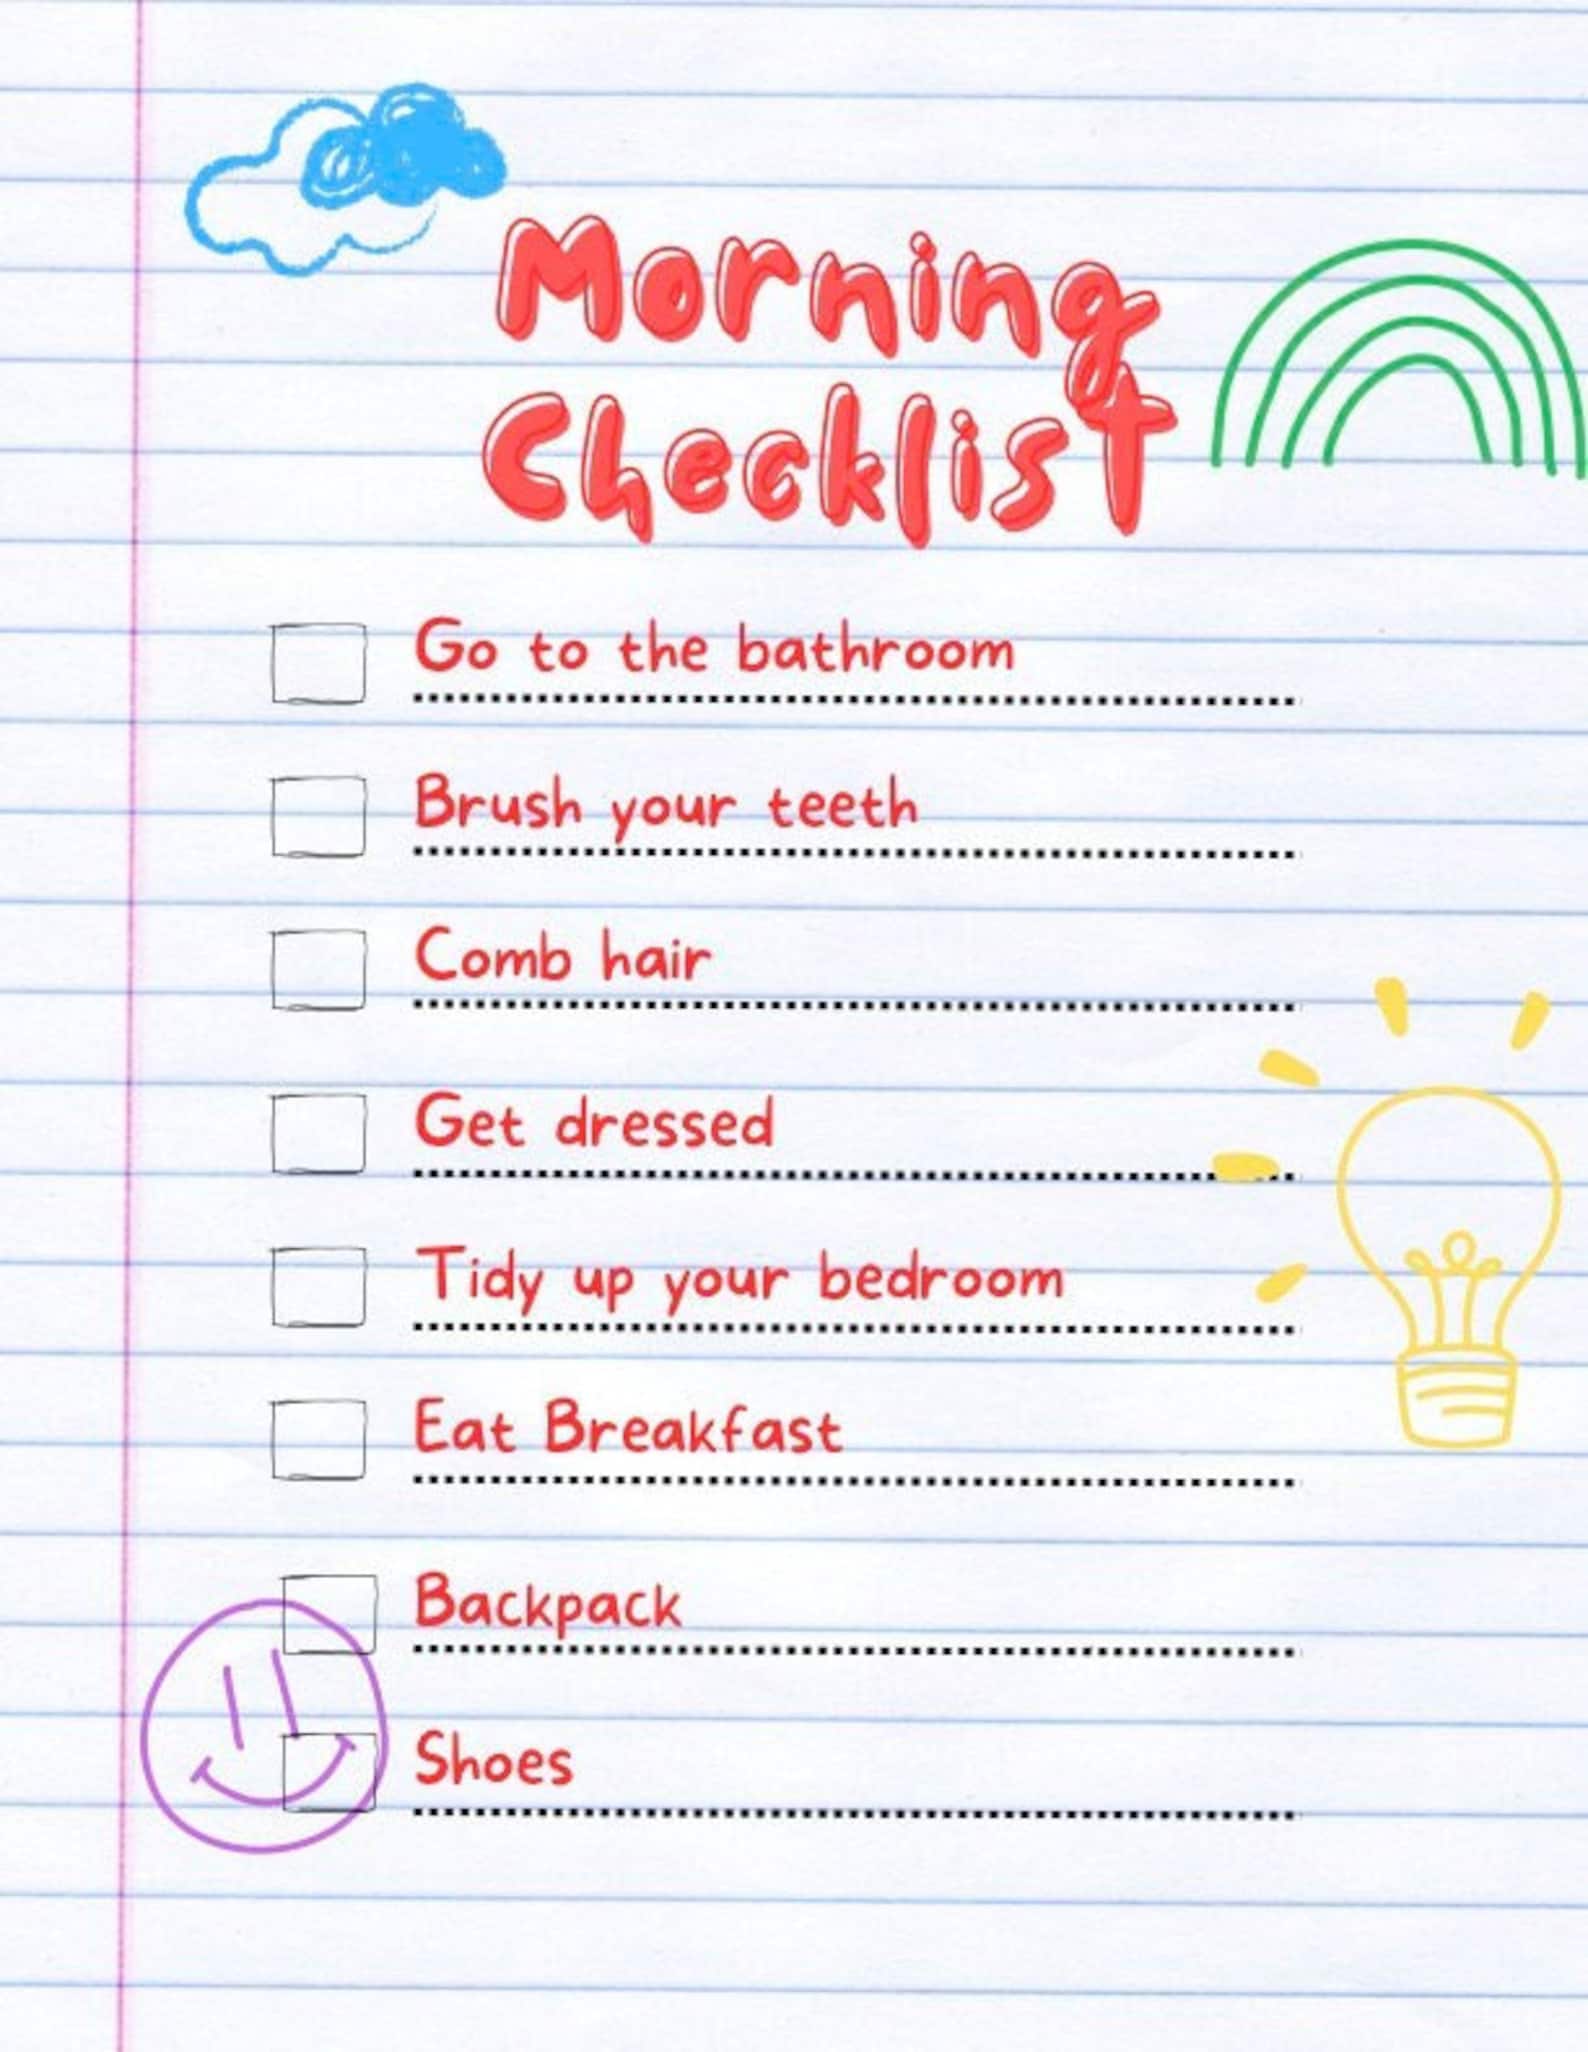 Morning
Checklist
Go to the bathroom
Brush your teeth
Comb hair
Get dressed
Tidy up your bedroom
Eat Breakfast
Backpack
Shoes